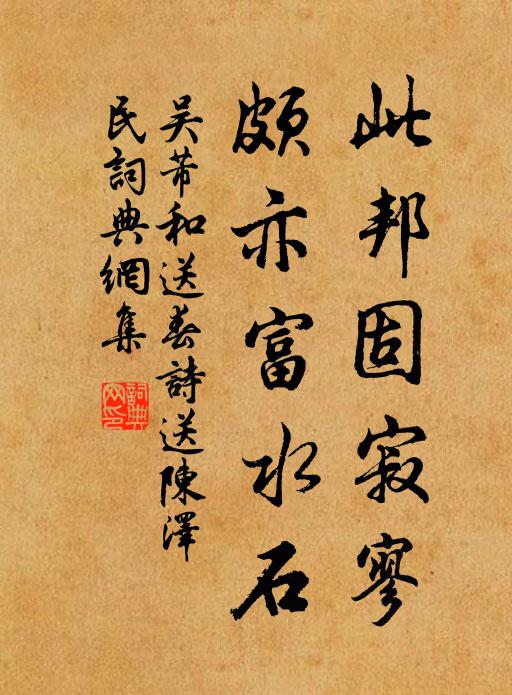 此邦固寂寥
頗亦富水石
吳芾和送春詩送陳澤
民詞典網集
詞典网印